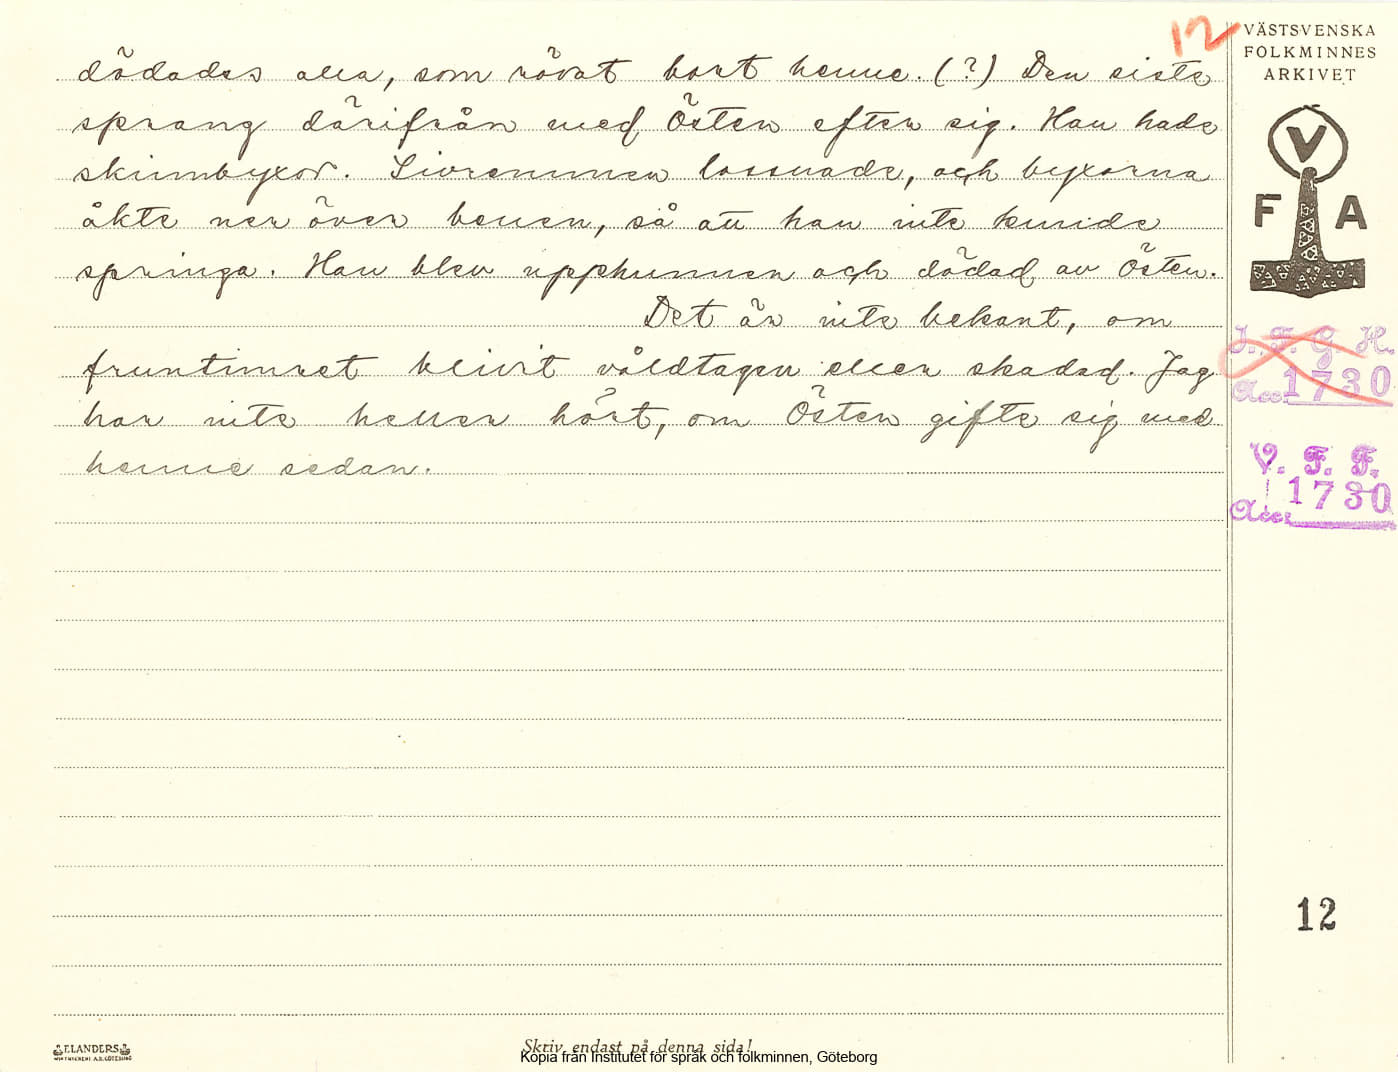 12
VÄSTSVENSKA
FOLKMINNES
ARKIVET
dödades alla, som rövat bort henne. (?) Den siste
sprang därifrån med Östen efter sig. Han hade
skinnbyxor. Livremmen lossnade, och byxorna
åkte ner över benen, så att han inte kunde
springa. Han blev upphunnen och dödad av Östen.
Det är inte bekant, om
fruntimret blivit våldtagen eller skadad. Jag
har inte heller hört, om Östen gifte sig med
henne sedan.
V
F A
I. F. G. H.
Acc. 1730
V. F. F.
Acc. 1730
12
ELANDERS
Skriv endast på denna sida!
Kopia från Institutet för språk och folkminnen, Göteborg